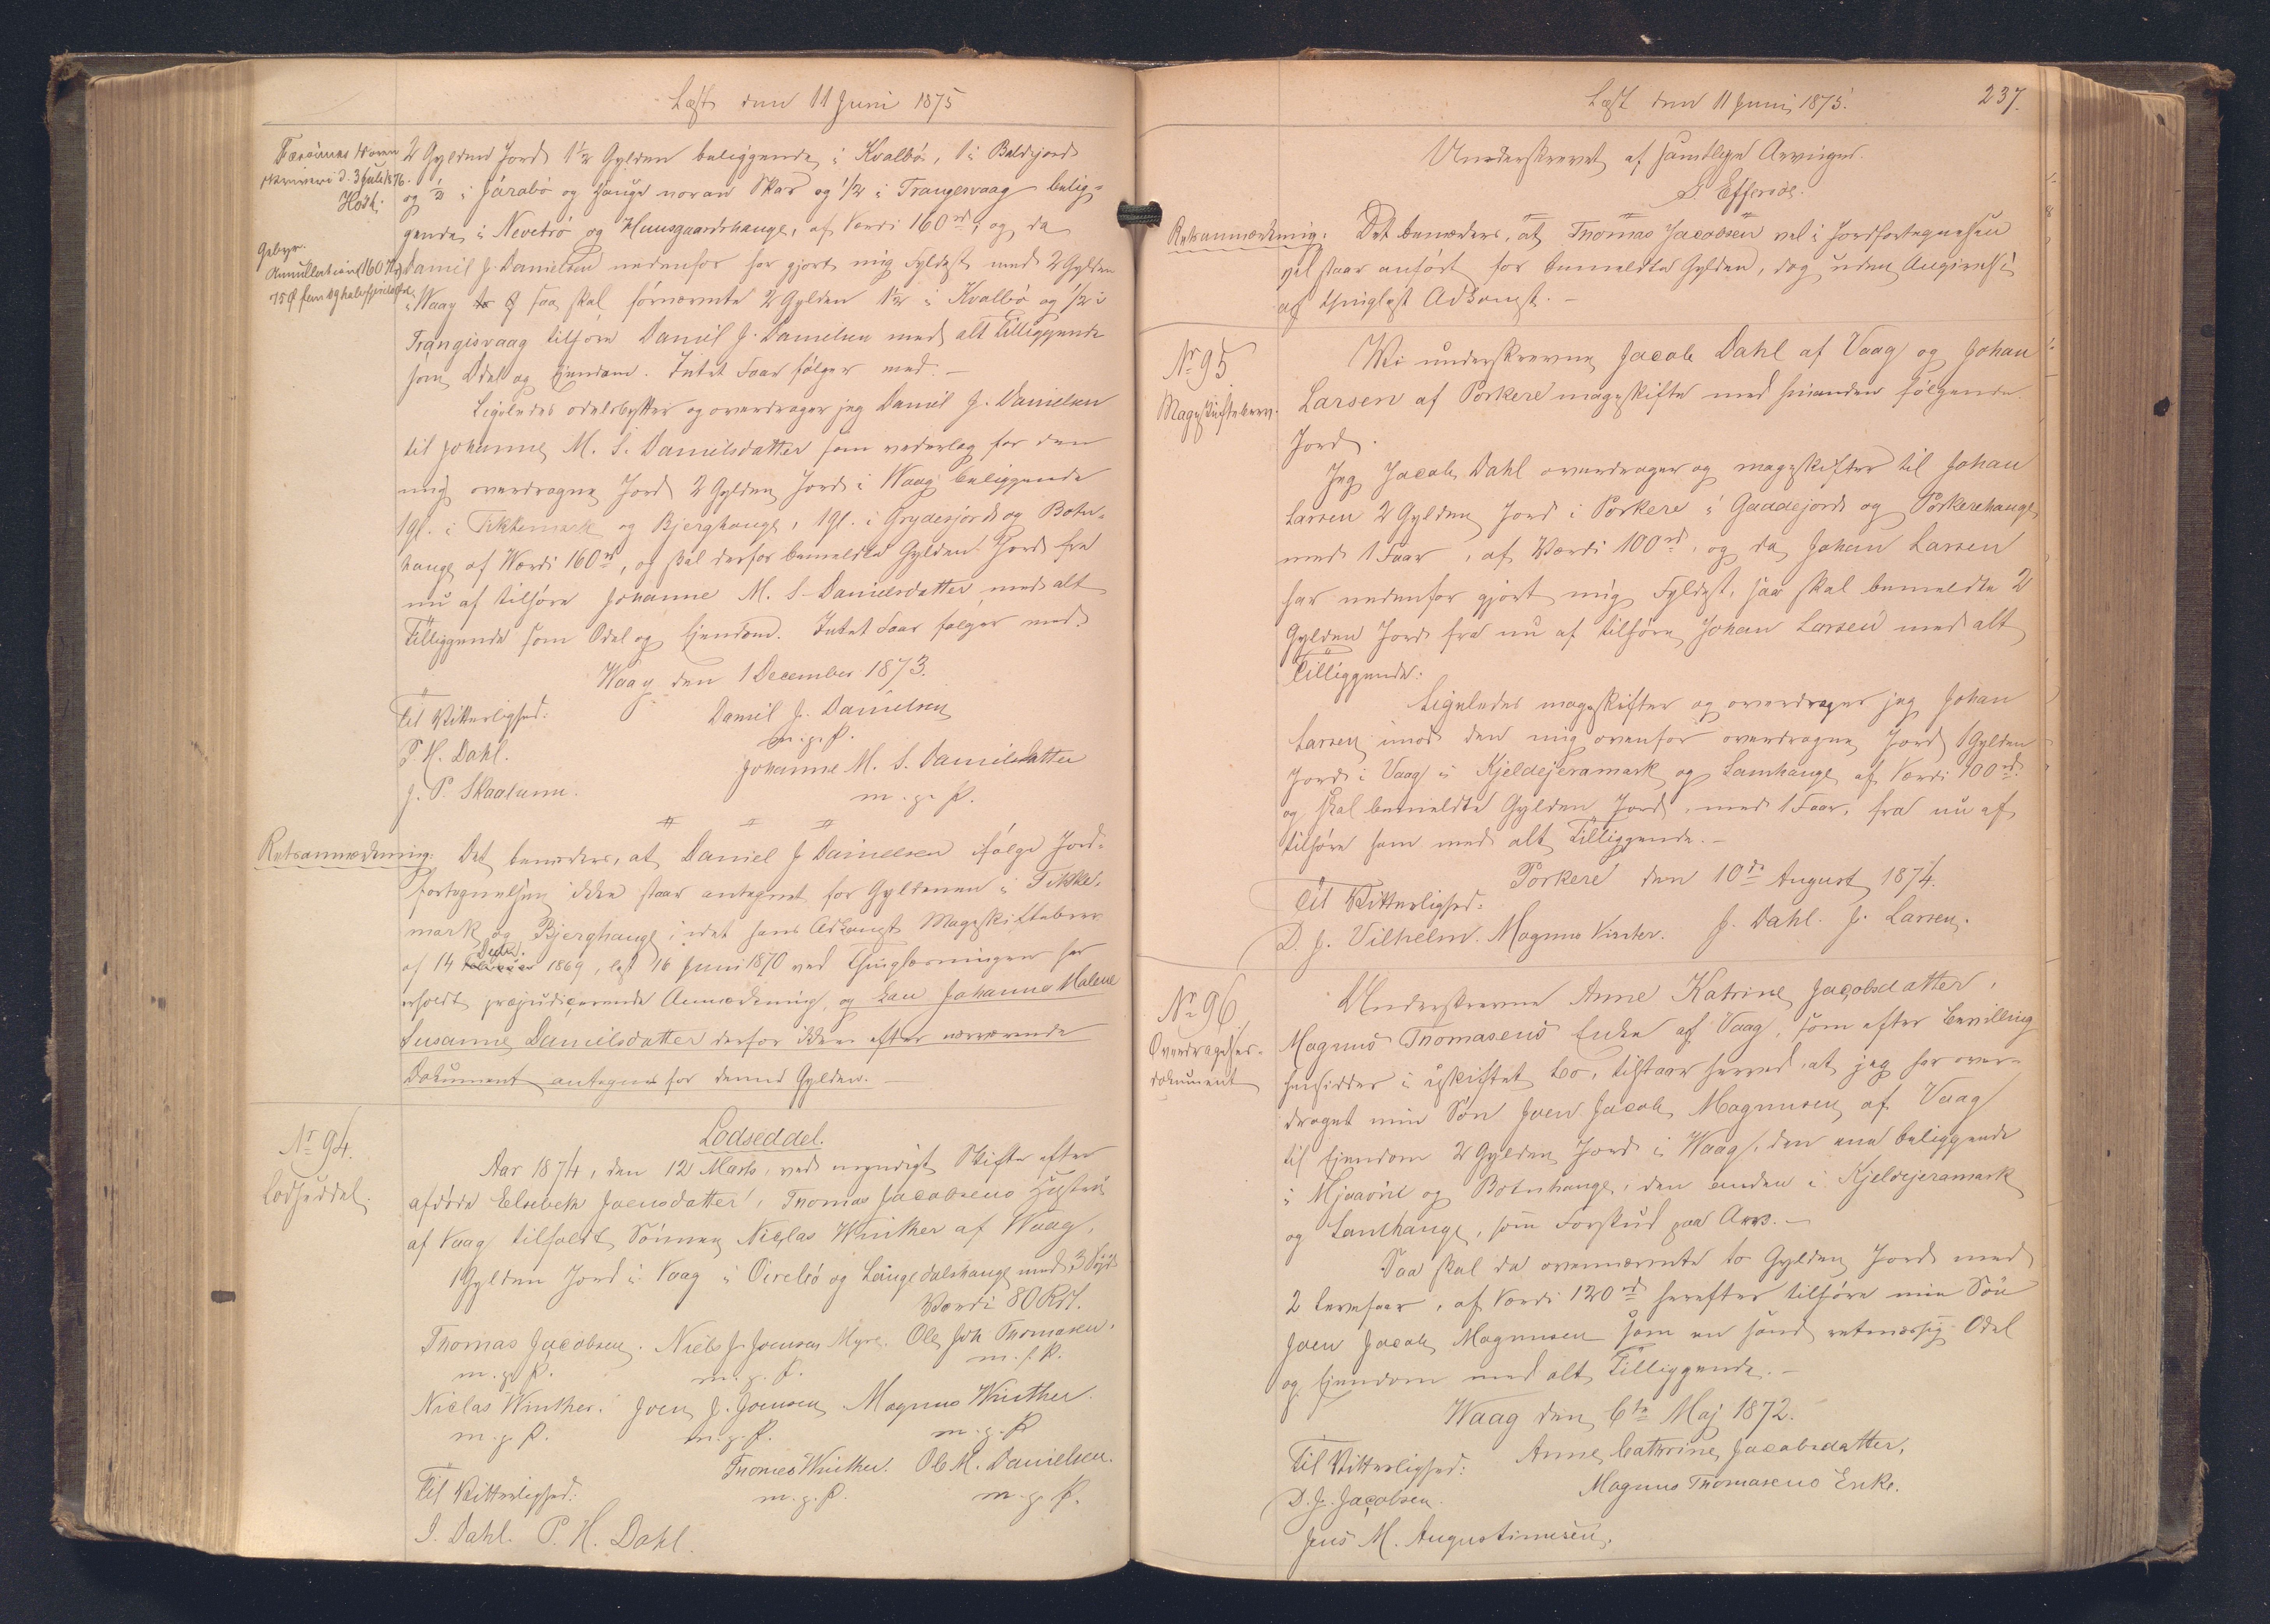 Læst den 11 Juni 1875
Færöernes Soren
skriveri d. 3 Juli 1876.
Gebyr.
Annullation (160 Kr)
2 Gylden Jord 1½ Gylden beliggende i Kvalbö, 1 i Beldejord
og ½ i Járabö og Hauge noran Skar og 1/2 i Trangesvaag belig-
gende i Nevetrö og Huusgaardshauge, af Værdi 160 rd, og da
Daniel J. Danielsen nedenfor har gjort mig Fyldest med 2 Gylden
i Waag saa skal förnævnte 2 Gylden 1½ i Kvalbö og 1/2 i
Trangisvaag tilhöre Daniel J. Danielsen med alt Tilliggende
som Odel og Ejendom. Intet Faar fölger med. –
Ligeledes odelsbytter og overdrager jeg Daniel J. Danielsen
til Johanne M. S. Danielsdatter som vederlag for den
mig overdragne Jord 2 Gylden Jord i Waag beliggende
1 gl. i Tikkemark og Bjerghauge, 1 gl. i Grydesjord og Botn-
hauge af Værdi 160 rd, og skal derfor bemeldte Gylden Jord fra
nu af tilhöre Johanne M. S. Danielsdatter med alt
Tilliggende som Odel og Ejendom. Intet Faar fölger med.
Waag den 1 December 1873.
Til Vitterlighed: Daniel J. Danielsen
P. H. Dahl. m. f. P.
J. P. Skaalum. Johanne M. S. Danielsdatter
m. f. P.
Retsanmærkning: Det bemærkes, at Daniel J Danielsen ifölge Jord-
fortegnelsen ikke staar antegnet for Gyldenen i Tikke-
mark og Bjerghauge, idet hans Adkomst Magskiftebrev
af 14 Decbr. 1869, læst 16 Juni 1870 ved Thinglæsningen har
erholdt præjudicerende Anmærkning, og kan Johanne Malene
Susanne Danielsdatter derfor ikke efter nærværende
Dokument antegnes for denne Gylden. –
Nr 94.
Lodseddel.
Lodseddel.
Aar 1874, den 12 Marts, ved myndigt Skifte efter
afdöde Elsebeth Joensdatter, Thomas Jacobsens Hustru
af Vaag tilfaldt Sönnen Niclas Winther af Waag,
1 Gylden Jord i Vaag i Öirebö og Laugedalshauge med 3
Værdi 80 Rdl.
Thomas Jacobsen. Niels J. Joensen Myre. Ole Joh Thomasen.
m. f. P. m. f. P. m. f. P.
Niclas Winther. Joen J. Joensen Magnus Winther.
m. f. P. m. f. P. m. f. P.
Thomas Winther. Ole M. Danielsen.
Til Vitterlighed: m. f. P. m. f. P.
J. Dahl. P. H. Dahl.
Læst den 11 Juni 1875.
237.
Underskrevet af samtlige Arvinger.
S. Effersöe.
Retsanmærkning: Det bemærkes, at Thomas Jacobsen vel i Jordfortegnelsen
vel staar anfört for bemeldte Gylden, dog uden Angivelse
af thinglæst Adkomst. –
Nr 95
Mageskiftebrev.
Wi underskrevne Jacob Dahl af Vaag og Johan
Larsen af Porkere mageskifte med hinanden fölgende
Jord.
Jeg Jacob Dahl overdrager og mageskifter til Johan
Larsen 2 Gylden Jord i Porkere i Gaddejord og Porkerehauge
med 1 Faar, af Værdi 100 rd, og da Johan Larsen
har nedenfor gjort mig Fyldest, saa skal bemeldte 2
Gylden Jord fra nu af tilhöre Johan Larsen med alt
Tilliggende:
Ligeledes mageskifter og overdrager jeg Johan
Larsen imod den mig ovenfor overdragne Jord 1 Gylden
Jord i Vaag i Kjeldejeramark og Lamhauge af Værdi 100 rd.
og skal bemeldte Gylden Jord, med 1 Faar, fra nu af
tilhöre ham med alt Tilliggende. –
Porkere den 10de August 1874.
Til Vitterlighed:
D. J. Vilhelm. Magnus Kister. J. Dahl. J. Larsen.
Nr 96
Overdragelses-
dokument
Underskrevne Anne Katrine Jacobsdatter,
Magnus Thomasens Enke af Vaag, som efter Bevilling
hensidder i uskiftet Bo, tilstaar herved, at jeg har over-
draget min Sön Joen Jacob Magnusen af Vaag
til Ejendom 2 Gylden Jord i Waag, den ene beliggende
i og Botnhauge, den anden i Kjeldejeramark
og Lamhauge, som Forskud paa Arv. –
Saa skal da ovennævnte to Gylden Jord med
2 Levefaar, af Værdi 120 rd herefter tilhöre min Sön
Joen Jacob Magnusen som en sand retmæssig Odel
og Ejendom med alt Tilliggende. –
Waag den 6te Maj 1872.
Til Vitterlighed: Anne Cathrine Jacobsdatter,
D. J. Jacobsen. Magnus Thomasens Enke.
Jens M. Augustinusen.